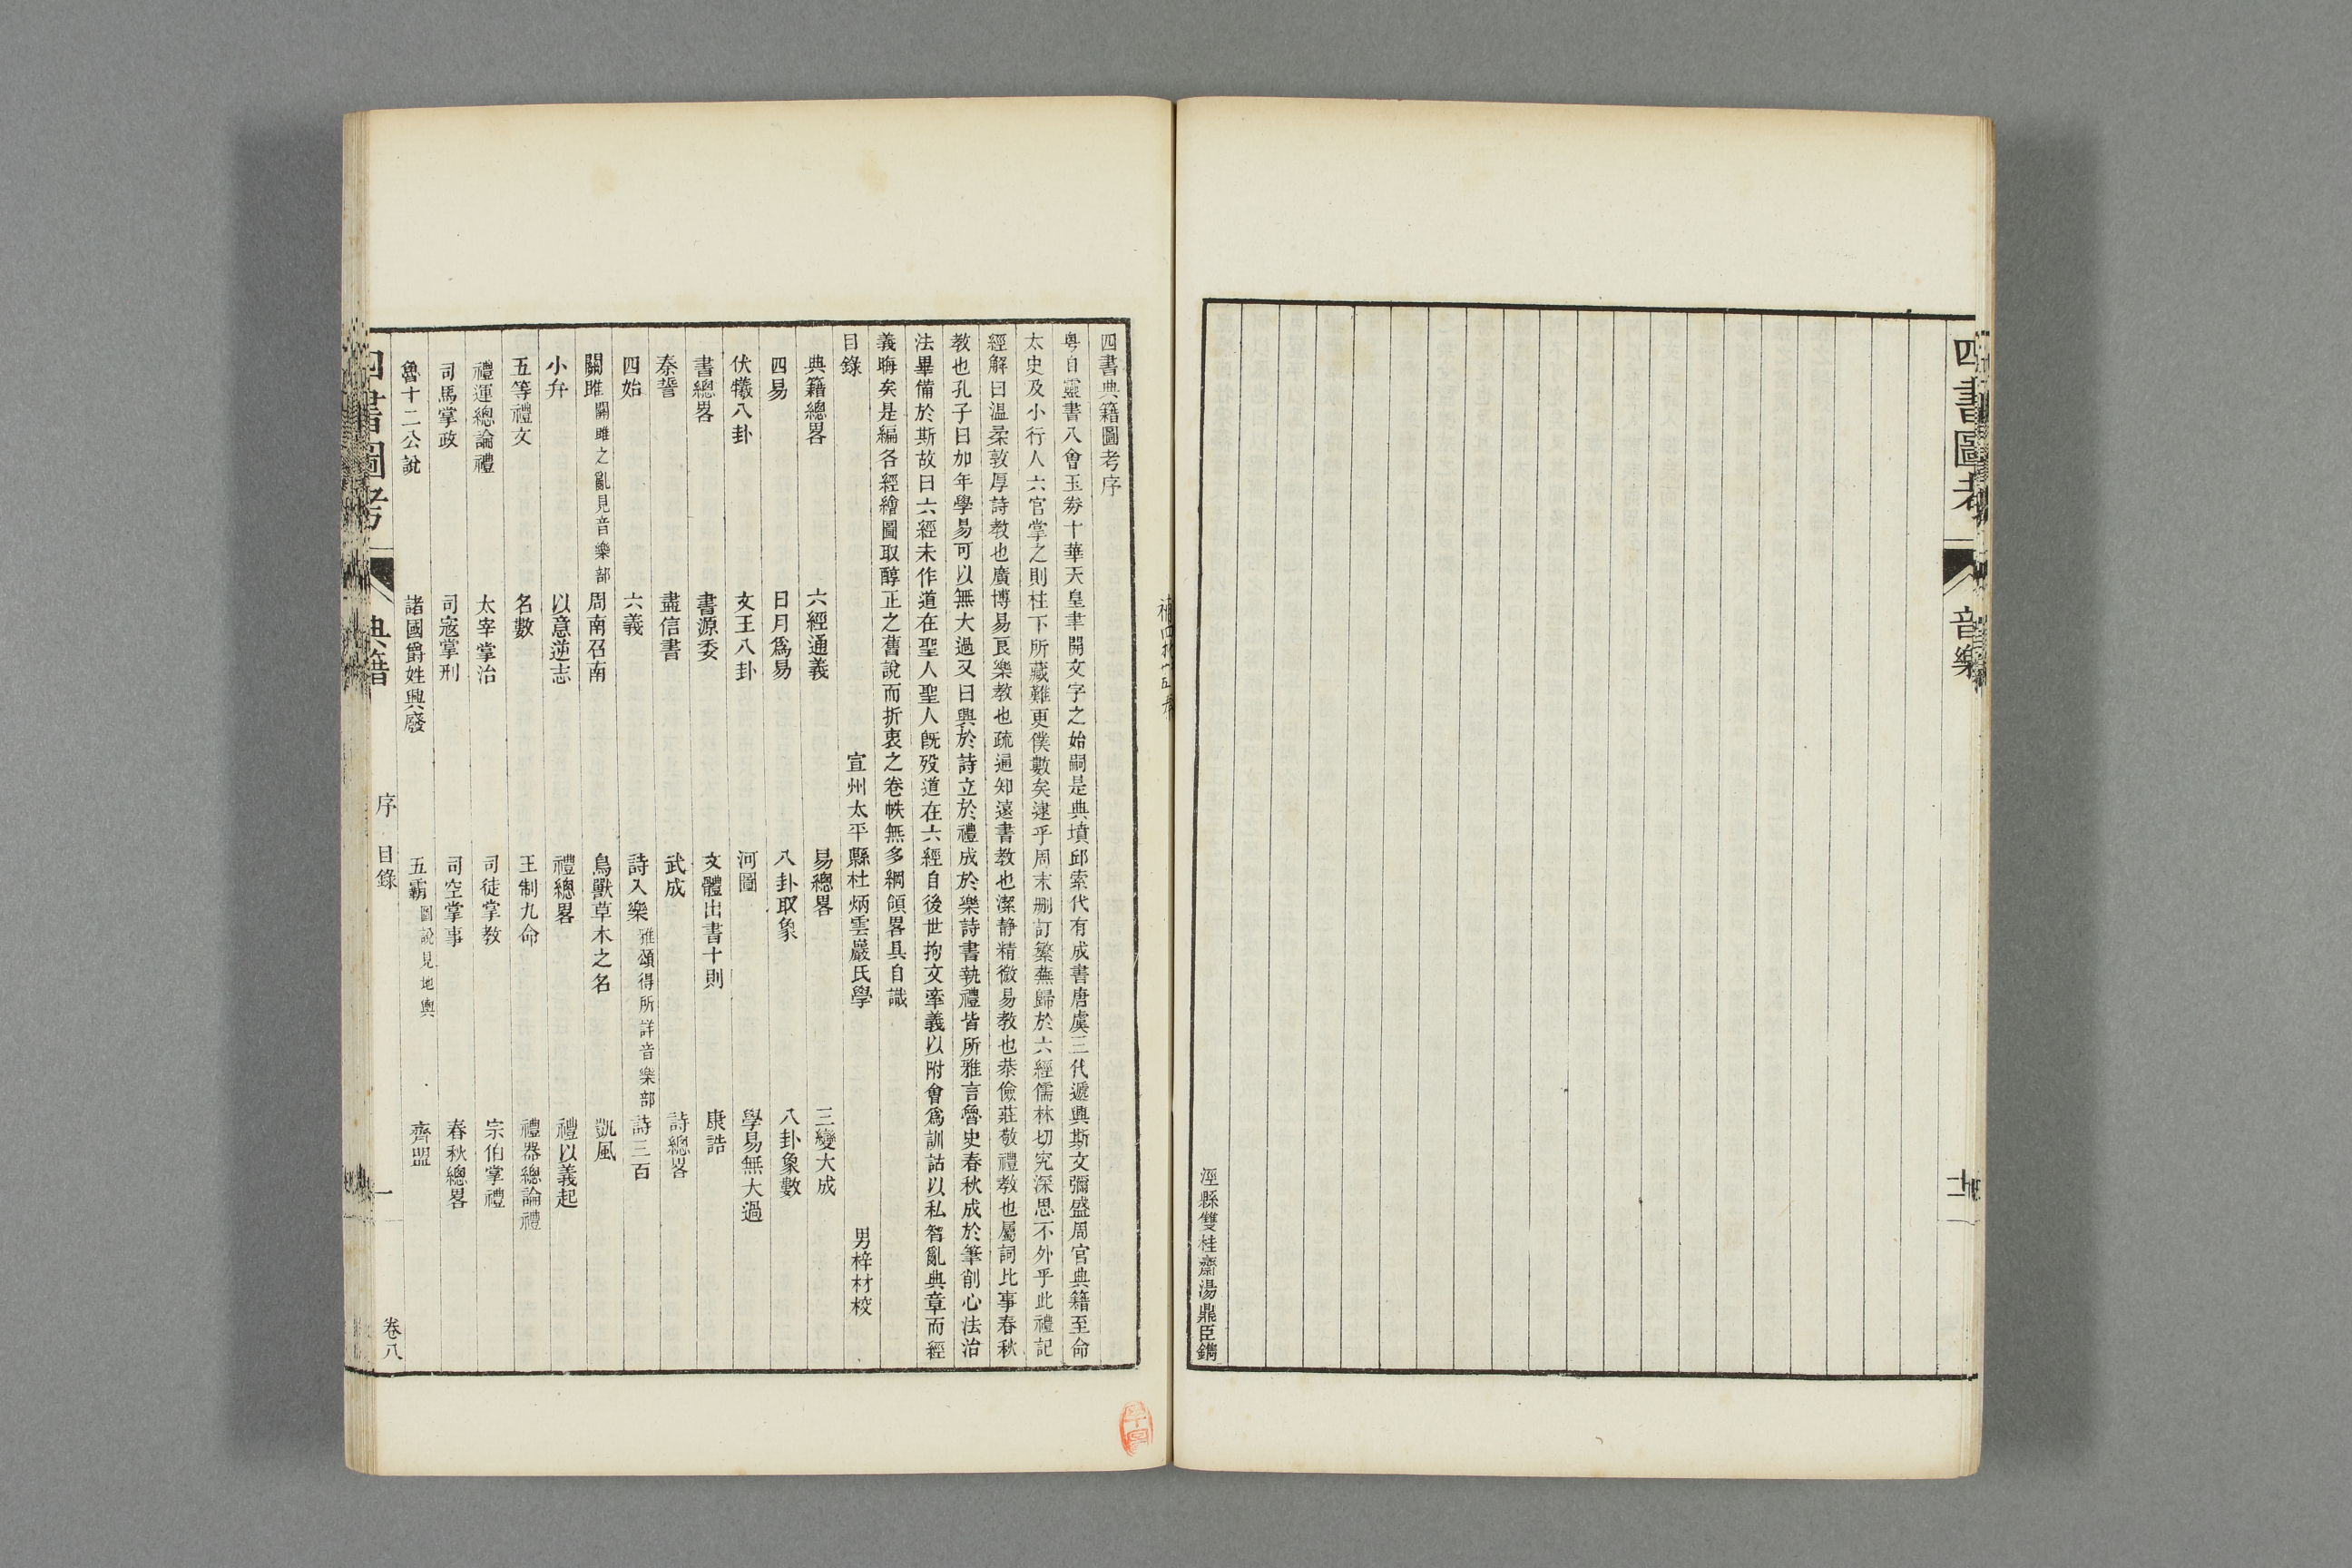 四書圖考
音樂
涇縣雙桂齋湯鼎臣鐫
四書典籍圖考序
粤自靈書八會玉劵十華天皇聿開文字之始嗣是典墳邱索代有成書唐虞三代遞興斯文彌盛周官典籍至命
太史及小行人六官掌之則柱下所藏難更僕數矣逮乎周末刪訂繁蕪歸於六經儒林切究深思不外乎此禮記
經解曰溫柔敦厚詩教也廣博易良樂教也疏通知遠書教也潔静精微易教也恭儉莊敬禮教也屬詞比事春秋
教也孔子曰加年學易可以無大過又曰興於詩立於禮成於樂詩書執禮皆所雅言魯史春秋成於筆削心法治
法畢備於斯故曰六經未作道在聖人聖人旣殁道在六經自後世拘文牽義以附會爲訓詁以私智亂典章而經
義晦矣是編各經繪圖取醇正之舊說而折衷之卷帙無多綱領畧具自識
目錄 宣州太平縣杜炳雲巖氏學 男梓材校
典籍總畧 六經通義 易總畧 三變大成
四易 日月爲易 八卦取象 八卦象數
伏犧八卦 文王八卦 河圖 學易無大過
書總畧 書源委 文體出書十則 康誥
秦誓 盡信書 武成 詩總畧
四始 六義 詩入樂 雅頌得所詳音樂部 詩三百
關雎 關雎之亂見音樂部 周南召南 鳥獸草木之名 凱風
小弁 以意逆志 禮總畧 禮以義起
五等禮文 名數 王制九命 禮器總論禮
禮運總論禮 太宰掌治 司徒掌教 宗伯掌禮
司馬掌政 司寇掌刑 司空掌事 春秋總畧
魯十二公說 諸國爵姓興廢 五霸 圖說見地輿 齊盟
四書圖考 典籍 序 目錄 一 卷八